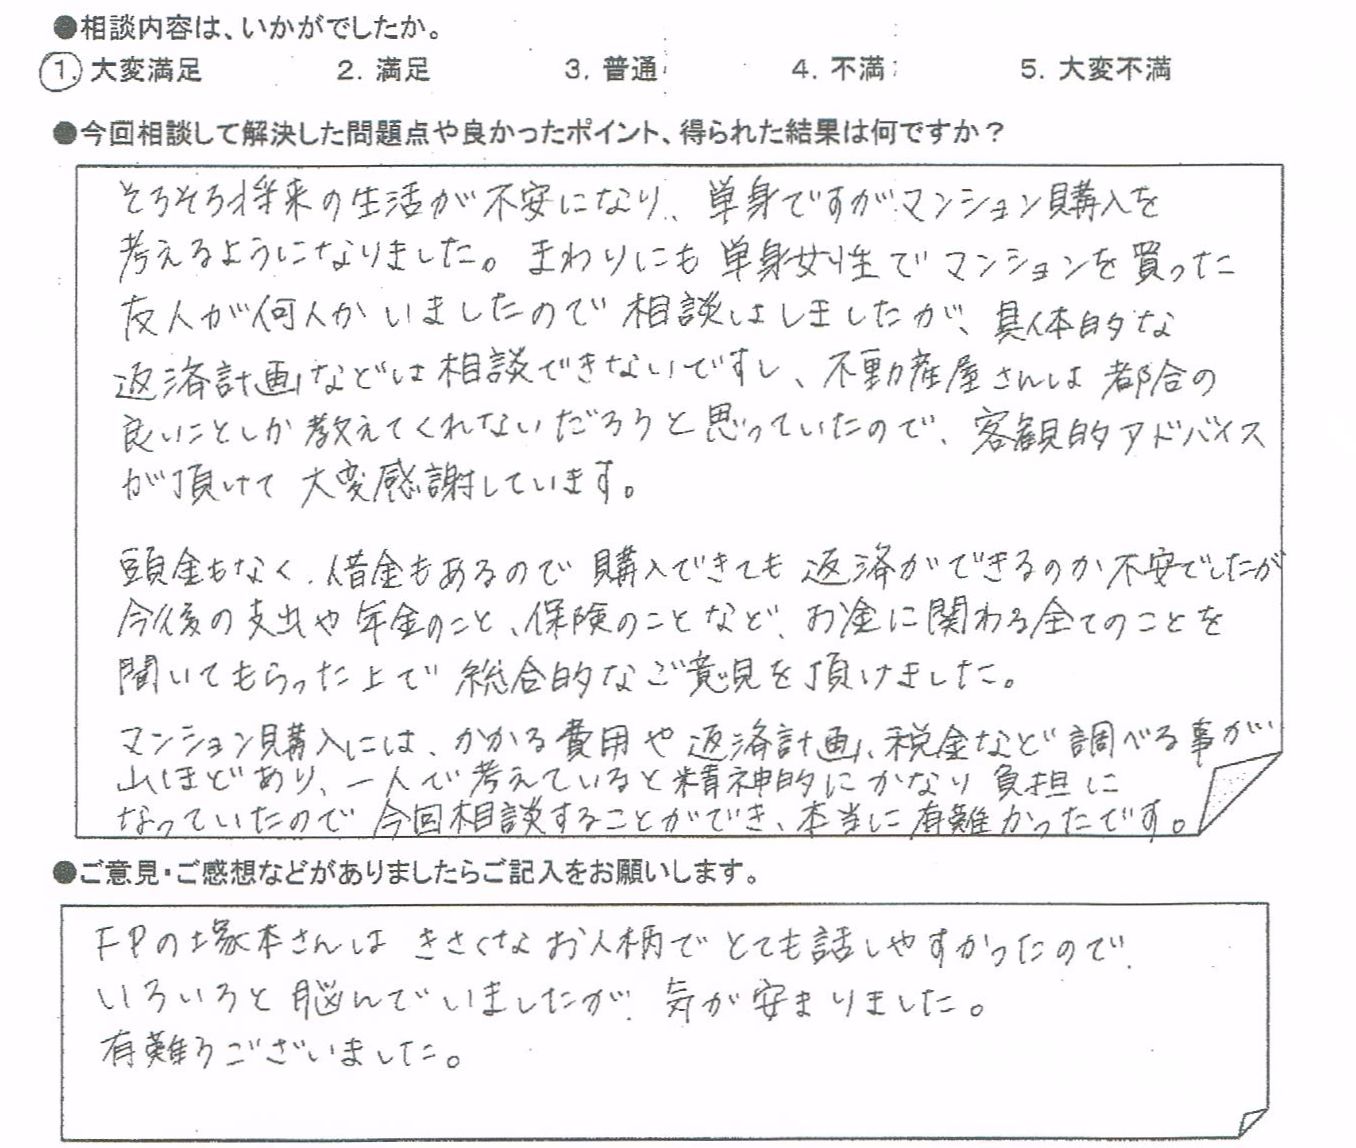 ●相談内容は、いかがでしたか。
1. 大変満足 2. 満足 3. 普通 4. 不満 5. 大変不満
●今回相談して解決した問題点や良かったポイント、得られた結果は何ですか？
そろそろ将来の生活が不安になり、単身ですがマンション購入を
考えるようになりました。まわりにも単身女性でマンションを買った
友人が何人かいましたので相談はしましたが、具体的な
返済計画などは相談できないですし、不動産屋さんは都合の
良いことしか教えてくれないだろうと思っていたので、客観的アドバイス
が頂けて大変感謝しています。
頭金もなく、借金もあるので購入できても返済ができるのか不安でしたが
今後の支出や年金のこと、保険のことなど、お金に関わる全てのことを
聞いてもらった上で総合的なご意見を頂けました。
マンション購入には、かかる費用や返済計画、税金など調べる事が
山ほどあり、一人で考えていると精神的にかなり負担に
なっていたので今回相談することができ、本当に有難かったです。
●ご意見・ご感想などがありましたらご記入をお願いします。
FPの塚本さんはきさくなお人柄でとても話しやすかったので、
いろいろと脳んでいましたが、気が安まりました。
有難うございました。